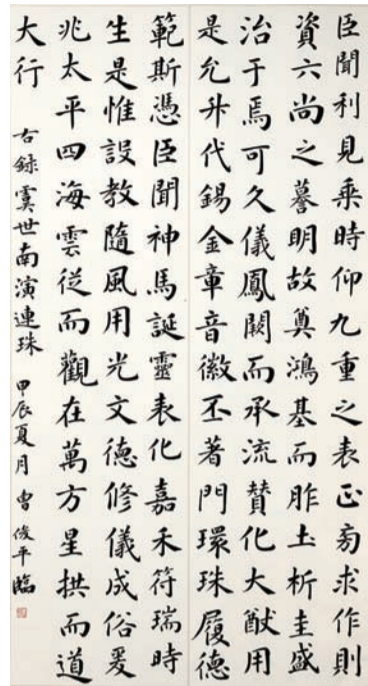 臣聞利見乘時仰九重之表正旁求作則
資六尚之謩明故奠鴻基而胙土析圭盛
治于焉可久儀鳳闕而承流贊化大猷用
是允升代錫金章音徽丕著門環珠履德
範斯憑臣聞神馬誕靈表化嘉禾符瑞時
生是惟設教隨風用光文德修儀成俗爰
兆太平四海雲從而觀在萬方星拱而道
大行
右錄虞世南演連珠 甲辰夏月 曾俊平臨